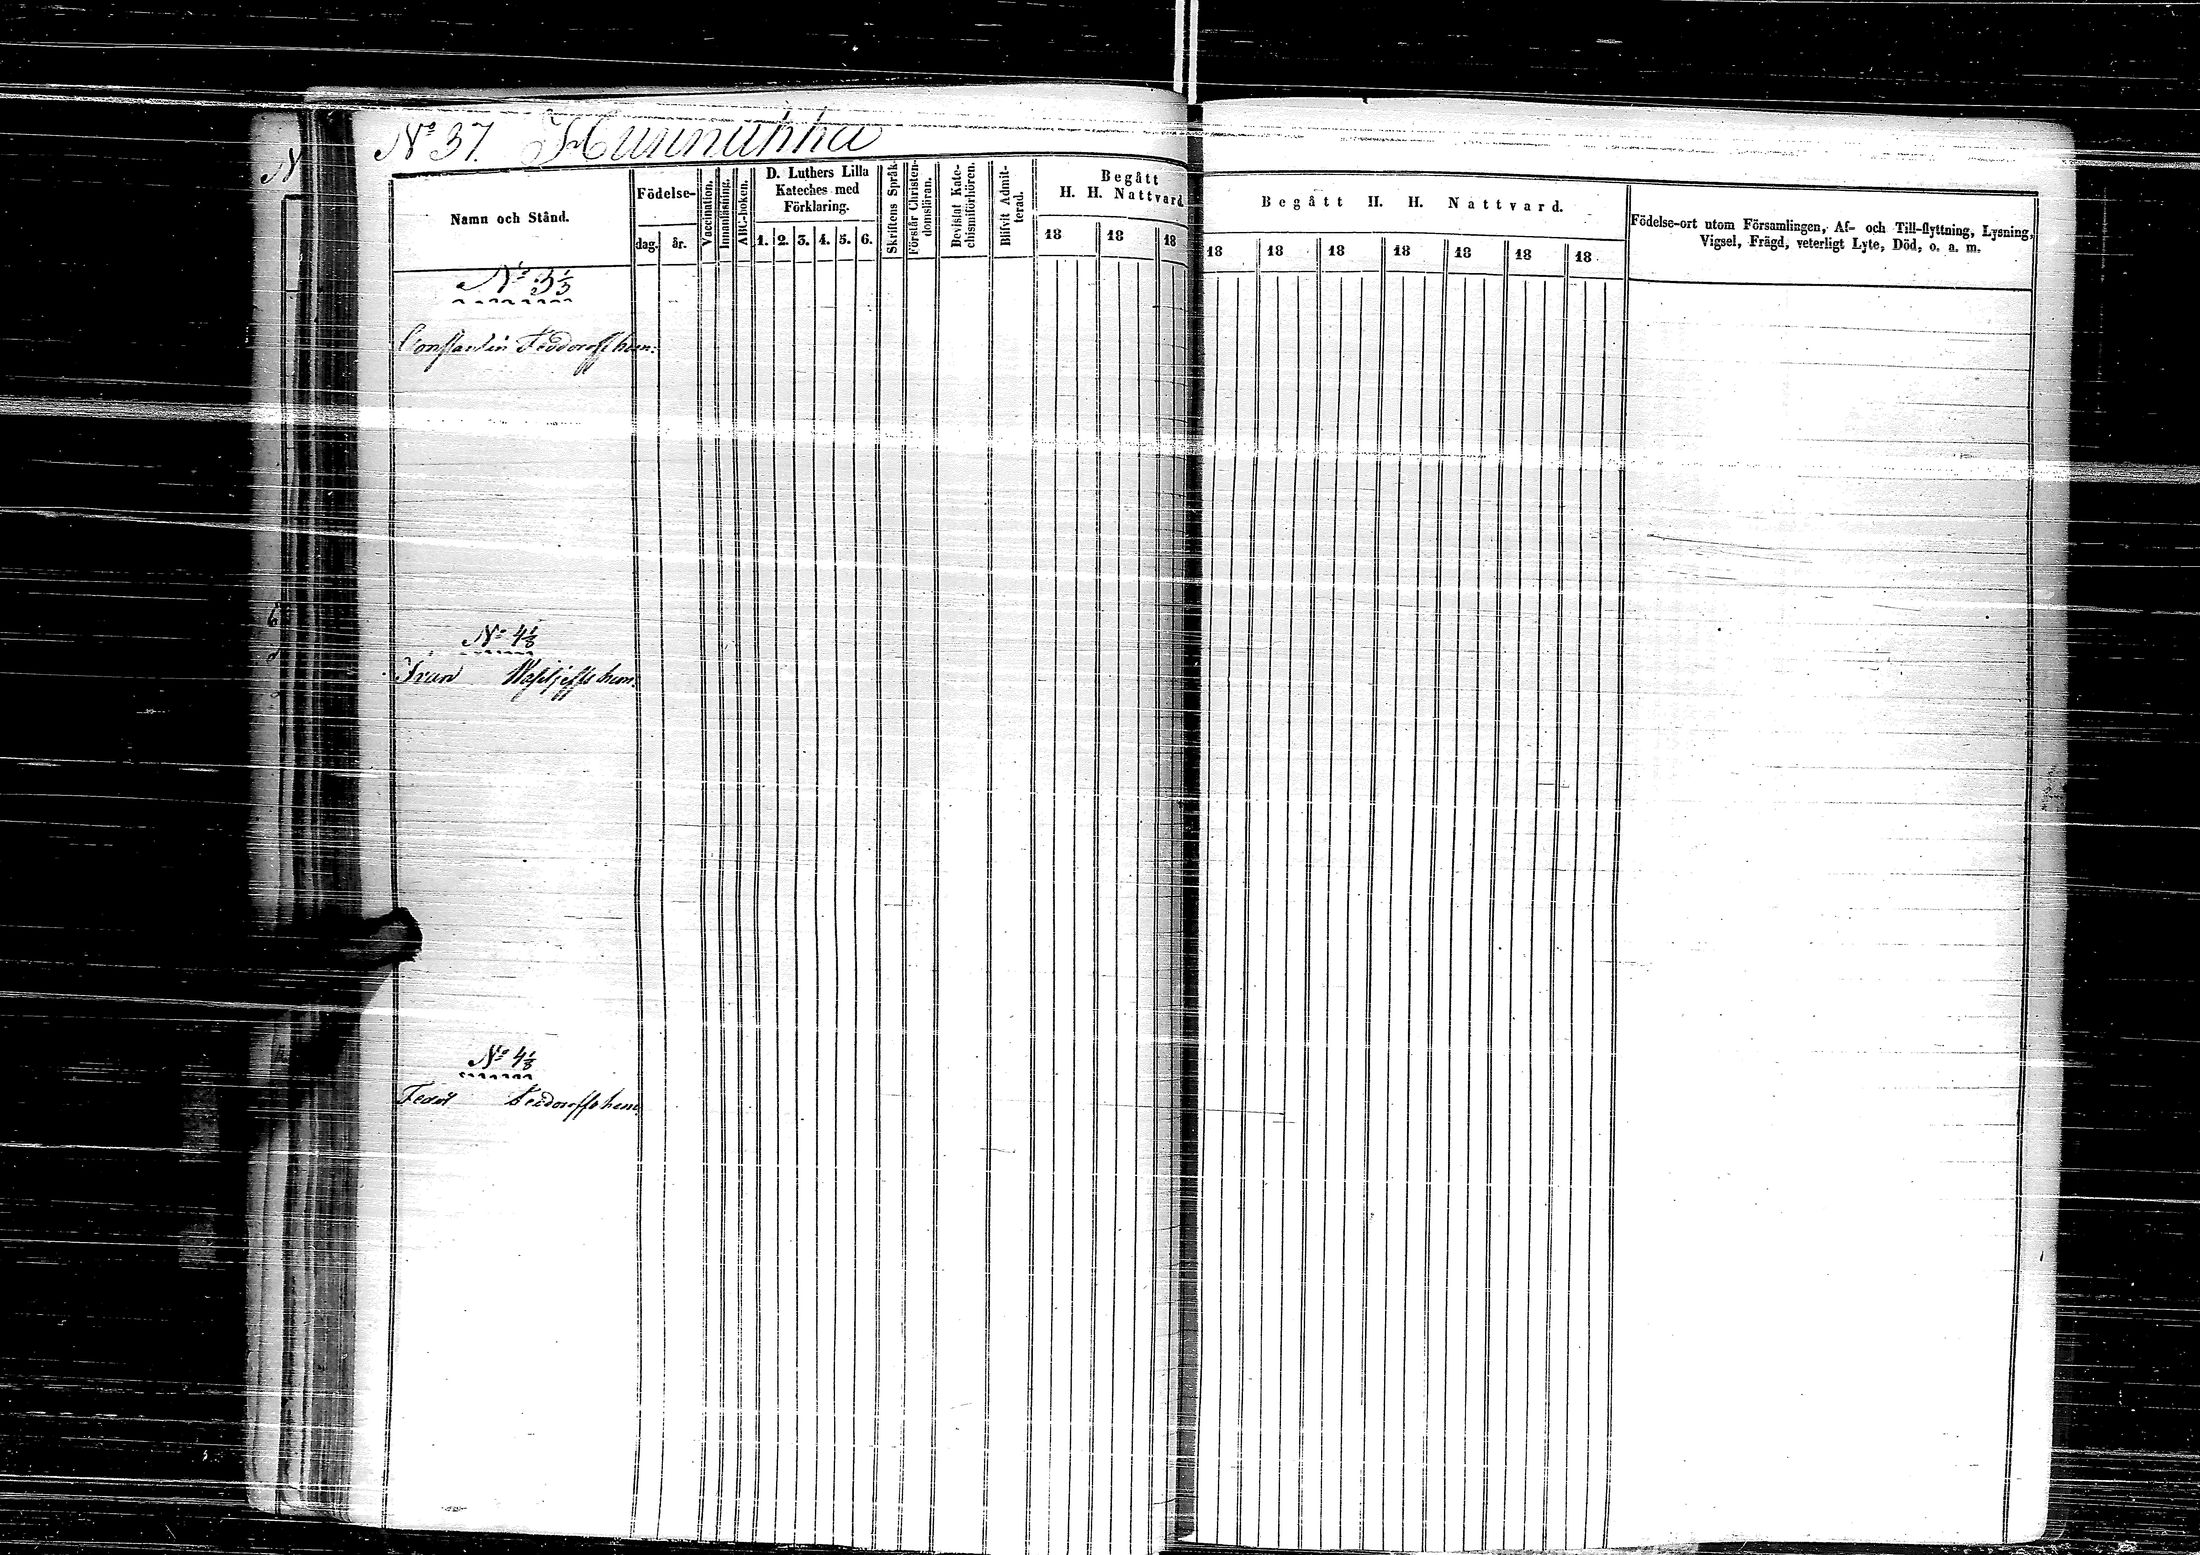 No 37. Hunnukka
Namn och Stånd.
Födelse-
dag. år.
Vaccination.
Innanläsning.
ABC-boken.
D. Luthers Lilla
Kateches med
Förklaring.
1. 2. 3. 4. 5. 6.
Skriftens Språk
Förstår Christen-
domsläran.
Bevistat Kate-
chismiförhören.
Blifvit Admit-
terad.
Begått
H. H. Nattvard.
18 18 18
Begått H. H. Nattvard.
18 18 18 18 18 18 18
Födelse-ort utom Församlingen, Af- och Till-flyttning, Lysning,
Vigsel, Frägd, veterligt Lyte, Död, o. a. m.
No
Constantin Feodoroffs hem:
No 4 1/8
Ivan Wasiljeffs hem.
No 4 1/8
Fedor Feodoroffs hem